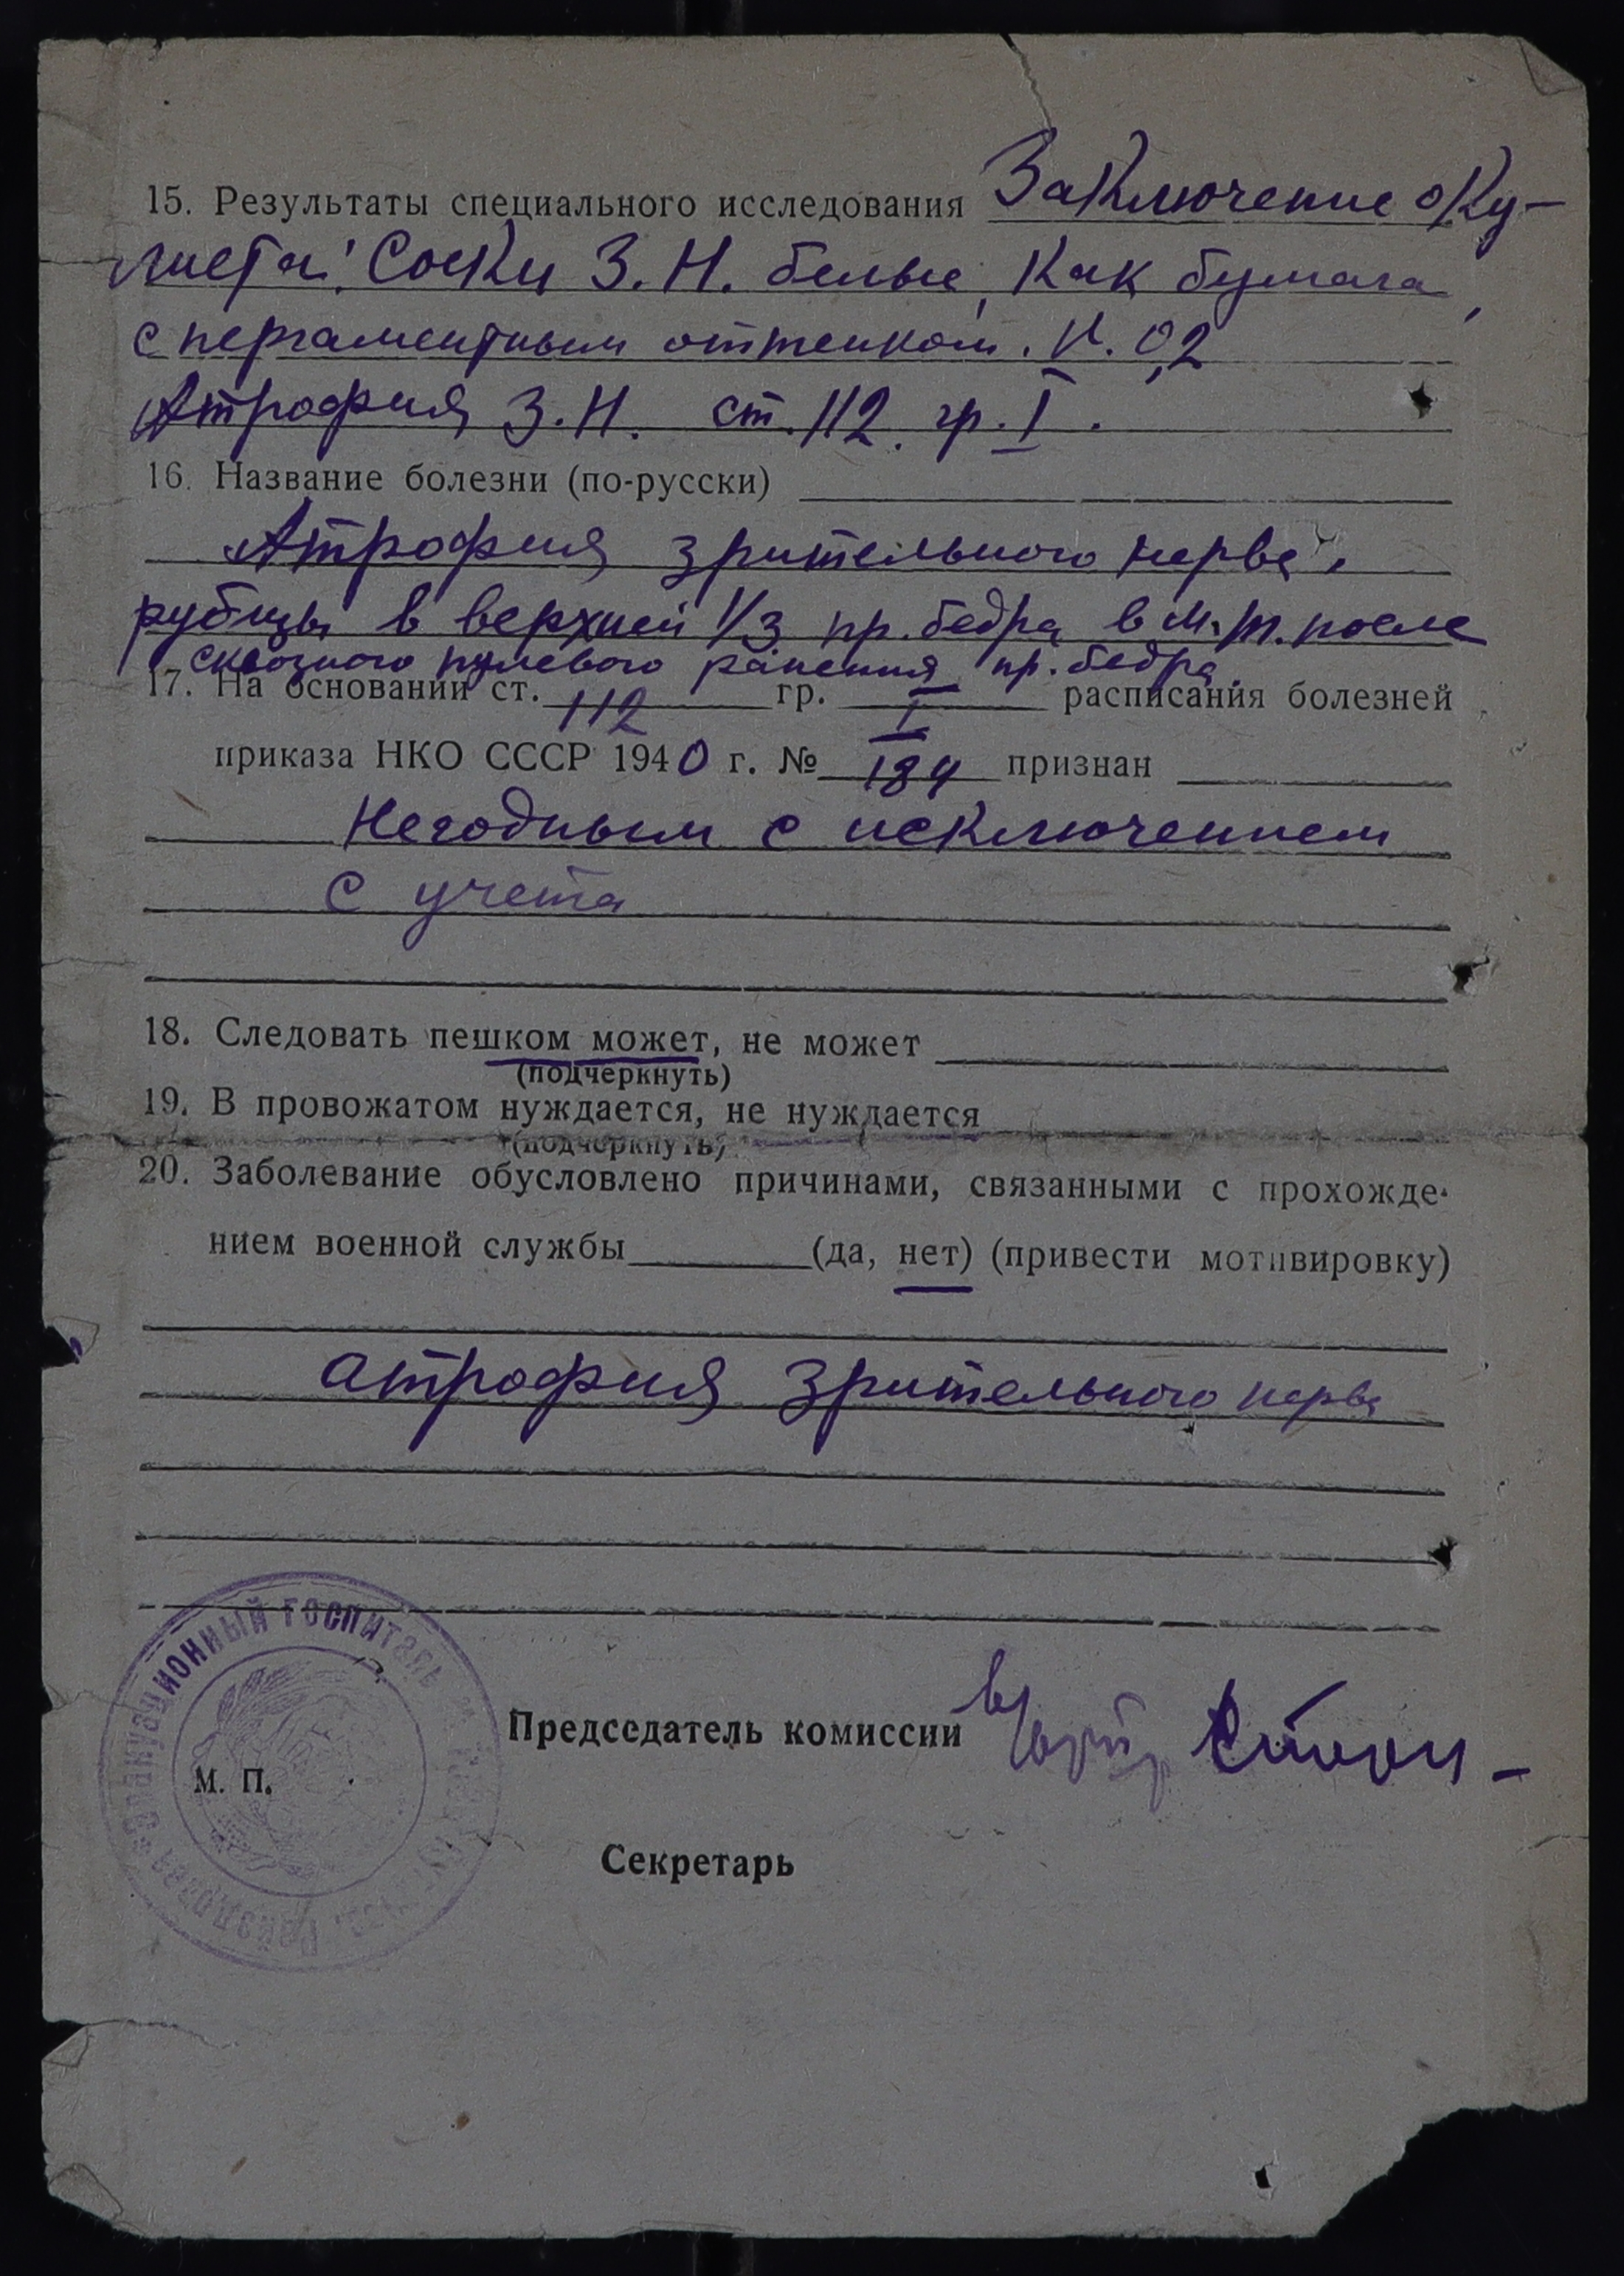 15. Результаты специального исследования Заключение оку-
листа: Соски З.Н. белые, как бумага,
с пергаментным оттенком. V. 0,2
Атрофия З.Н. ст. 112 гр. I.
16. Название болезни (по-русски)
Атрофия зрительного нерва,
рубцы в верхней 1/3 пр. бедра в м.т. после
сквозного пулевого ранения пр. бедра.
17. На основании ст. 112 гр. I расписания болезней
приказа НКО СССР 1940 г. № 184 признан
Негодным с исключением
с учета
18. Следовать пешком может, не может
(подчеркнуть)
19. В провожатом нуждается, не нуждается
(подчеркнуть)
20. Заболевание обусловлено причинами, связанными с прохожде-
нием военной службы (да, нет) (привести мотивировку)
атрофия зрительного нерва
эвакуационный госпиталь
Председатель комиссии
М. П.
Секретарь